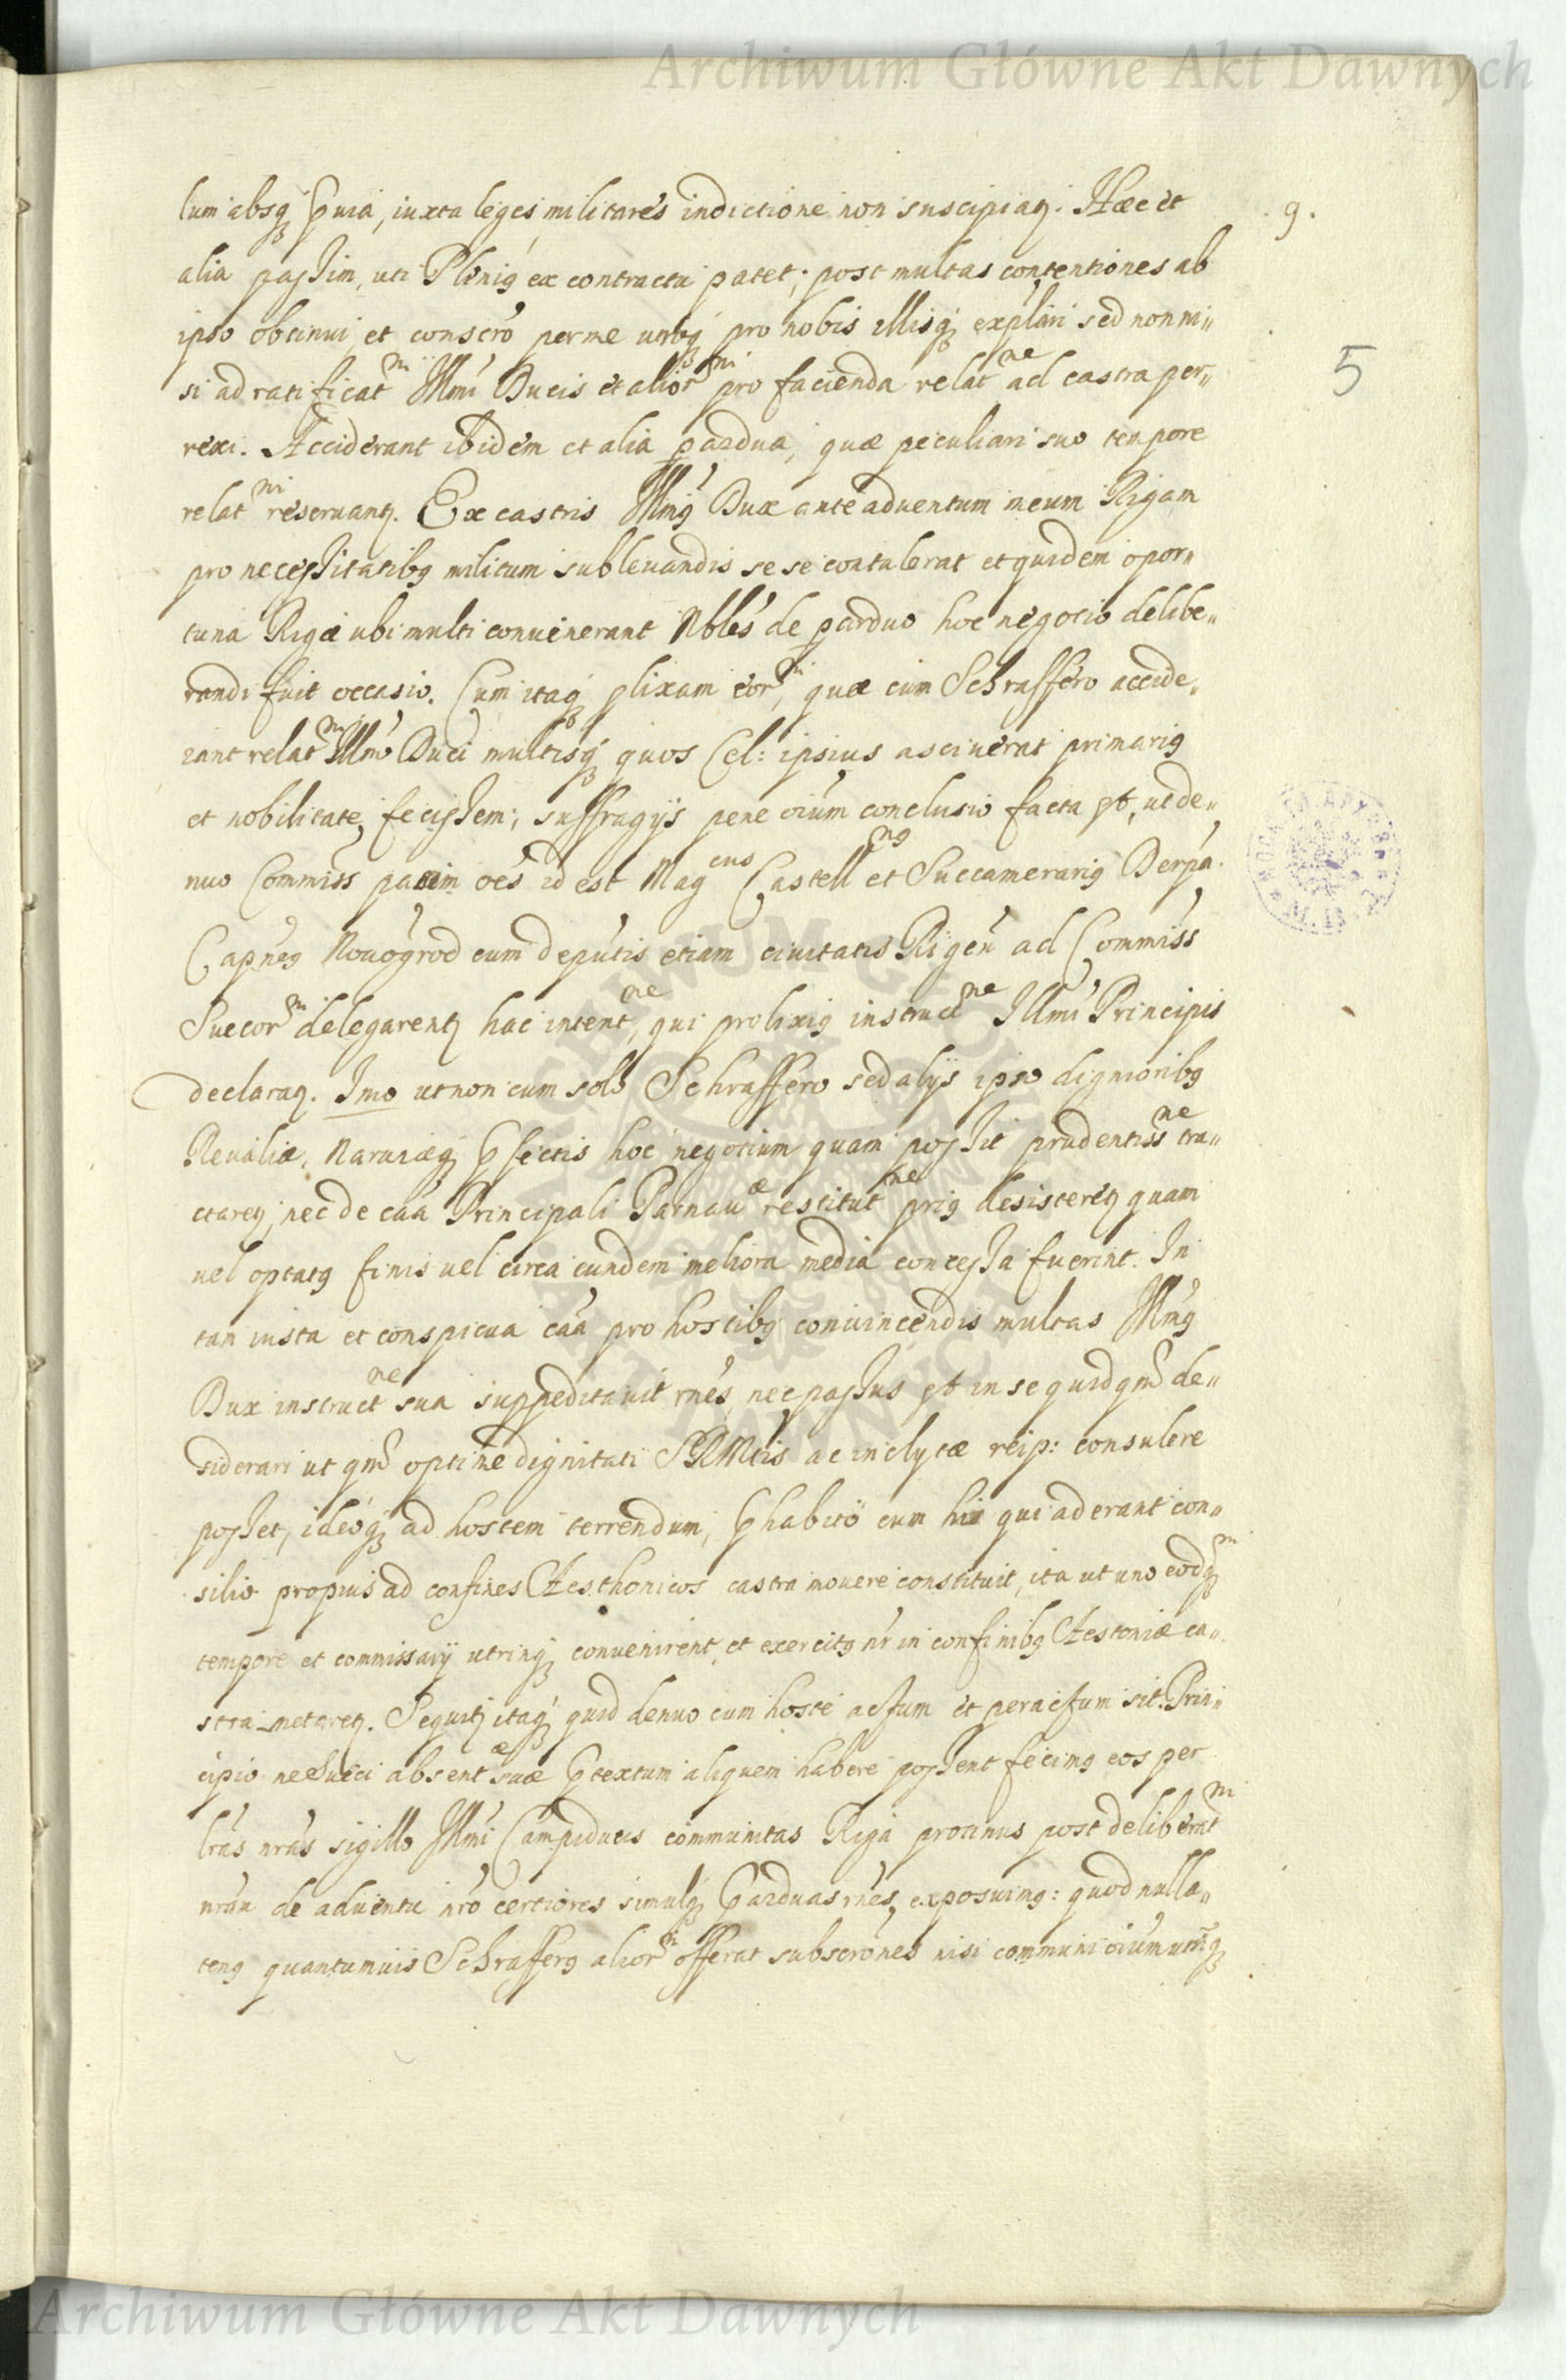 Archiwum Główne Akt Dawnych
lum absq3 pvia, iuxta leges militares indictione non suscipiaꝫ. Hæc et
9.
alia passim, uti Pleniꝰ ex contractu patet; post multas contentiones ab
ipso obtinui, et conscrō per me utq3 pro nobis illisq3 explāri sed non ni„
si ad ratificatᵐ Illmi Ducis et aliorᵐ pro facienda relatⁿᵉ ad castra per„
5
rexi. Acciderant ibidem et alia pardua, quæ peculiari suo tempore
relatᵐ reseruantꝫ. Ex castris Illmꝰ Dux ante aduentum meum Rigam
pro necessitatibꝰ militum subleuandis sese contulerat et quidem opor„
tuna Rigæ ubi multi conuenerant Nbles de parduo hoc negotio delibe„
randi fuit occasio. Cum itaq3 plixam eorᵐ, quæ cum Schraffero accide„
rant relatᵐ Illmo Duci multisq3 quos Cel: ipsius asciuerat primariꝰ
et nobilitate, fecissem; suffragijs pene oium conclusio facta est, ut de„
nuo Commiss oēs id est Magᶜᵘˢ Castellⁿꝰ et Succamerariꝰ Derpā.
Capneꝰ Nouogrod cum deputis etiam ciuitatis Rigeñ ad Commiss
Suecorᵐ delegarentꝫ hac intentⁿᵉ, qui prolixiꝰ instructⁿᵉ Illmi Principis
declaraꝫ. Imo ut non cum solo Schraffero sed alijs ipso dignioribꝰ
Reualiæ, Naruæq3 Pfectis hoc negotium quam possit prudentissⁿᵉ tra„
ctareꝫ, nec de caā Principali Parnauᵃᵉ restitutⁿᵉ priꝰ desistereꝫ quam
uel optatꝰ finis uel circa eundem meliora media concessa fuerint. In
tan iusta et conspicua caā pro hostibꝰ conuincendis multas Illmꝰ
Dux instructⁿᵉ sua suppeditauit rnēs, nec passus est in se quidqm de„
siderari ut qm optime dignitati SRMtis ac inclytæ reip: consulere
posset, ideoq3 ad hostem terrendum, Phabito cum his qui aderant con„
silio propius ad confines Aesthonicos castra mouere constituit, ita ut uno eodq3ᵐ
tempore et commissarij utrinq3 conuenirent, et exercitꝰ nr in confinibꝰ Aestoniæ ca„
stra metareꝫ. Sequitꝫ itaq3 quid denuo cum hoste actum et peractum sit. Prin„
cipio ne Sueci absentᵃᵉ suæ Ptextum aliquem habere possent fecimꝰ eos per
lrās nrās sigillo Illmi Campiducis communitas Riga protinus post deliberatᵐ
nrām de aduentu nrō certiores simulq3 Parduas rnēs, exposuimꝰ: quod nulla„
tenꝰ quantumuis Schrafferꝰ aliorᵐ offerat subscrōnes nisi communi oium utriusq3
Archiwum Główne Akt Dawnych